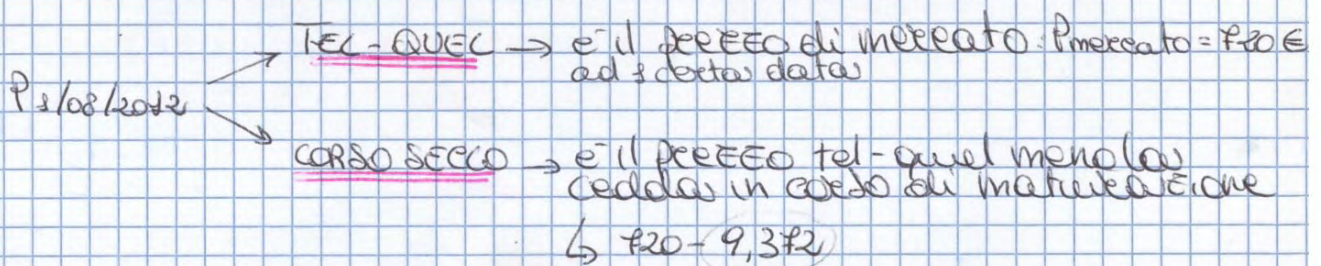 TEL-QUEL → è il prezzo di mercato: Pmercato = 720 €
ad 1 certa data
P 1/08/2012
CORSO SECCO → è il prezzo tel-quel meno la
cedola in corso di maturazione
↳ 720 - 9,372